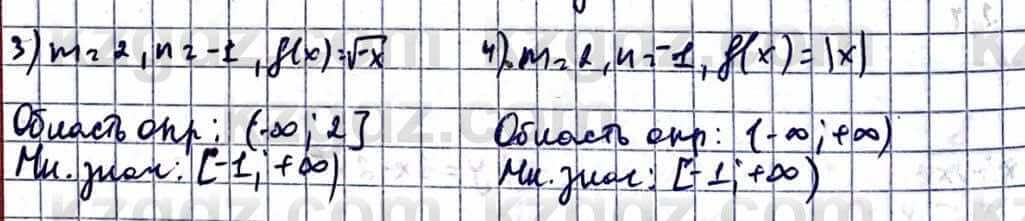 3) m=2, n=-1, f(x)=√-x
Область опр: (-∞; 2]
Мн. знач: [-1; +∞)
4) m=2, n=-1, f(x)=|x|
Область опр: (-∞; +∞)
Мн. знач: [-1; +∞)